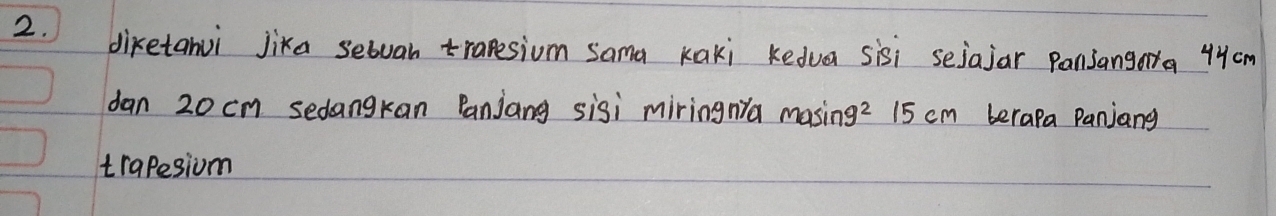 2. diketahui jika sebuah trapesium sama kaki kedua sisi sejajar panjangnya 44 cm
dan 20 cm sedangkan Panjang sisi miringnya masing² 15 cm berapa Panjang
trapesium